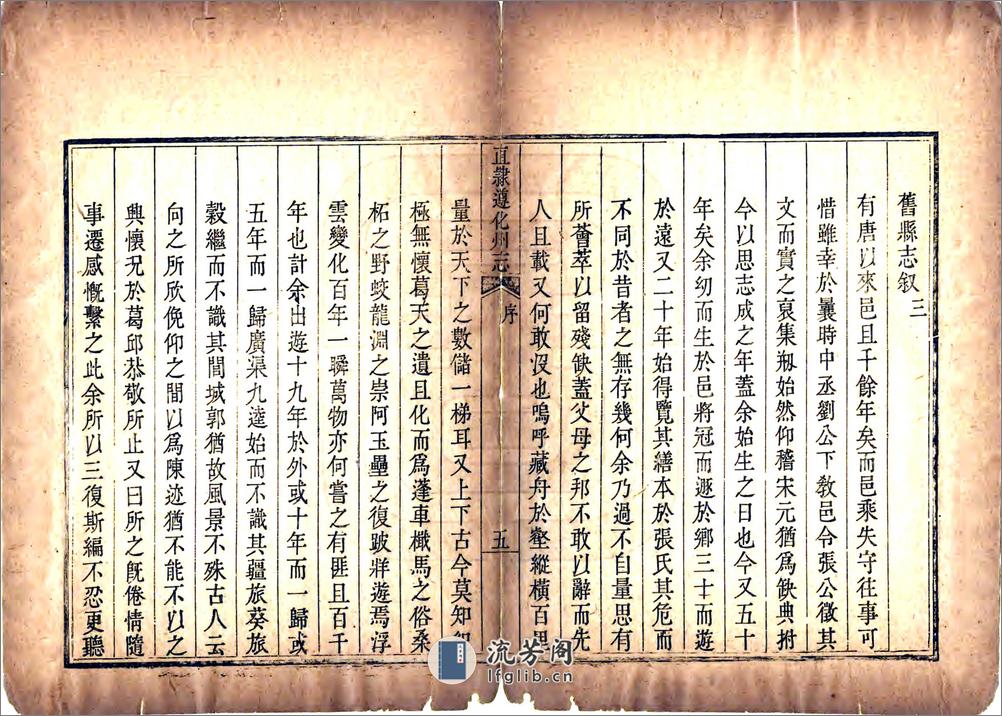 舊縣志叙三
有唐以來邑且千餘年矣而邑乘失守往事可
惜雖幸於曩時中丞劉公下敎邑令張公徵其
文而實之裒集剏始然仰稽宋元猶爲缺典拊
今以思志成之年蓋余始生之日也今又五十
年矣余幼而生於邑將冠而遯於鄉三十而遊
於遠又二十年始得覽其繕本於張氏其危而
不同於昔者之無存幾何余乃過不自量思有
所薈萃以留殘缺蓋父母之邦不敢以辭而先
人且載又何敢沒也嗚呼藏舟於壑縱橫百里
直隸遵化州志
序
五
量於天下之數儲一梯耳又上下古今莫知
極無懷葛天之遺且化而爲蓬車檝馬之俗桑
柘之野蛟龍淵之崇阿玉壘之復跛牂遊焉浮
雲變化百年一瞬萬物亦何嘗之有匪且百千
年也計余出遊十九年於外或十年而一歸或
五年而一歸廣渠九逵始而不識其疆旅葵旅
穀繼而不識其間城郭猶故風景不殊古人云
向之所欣俛仰之間以爲陳迹猶不能不以之
興懷况於葛邱恭敬所止又曰所之旣倦情隨
事遷感慨繫之此余所以三復斯編不忍更聽
流芳阁
lfglib.cn